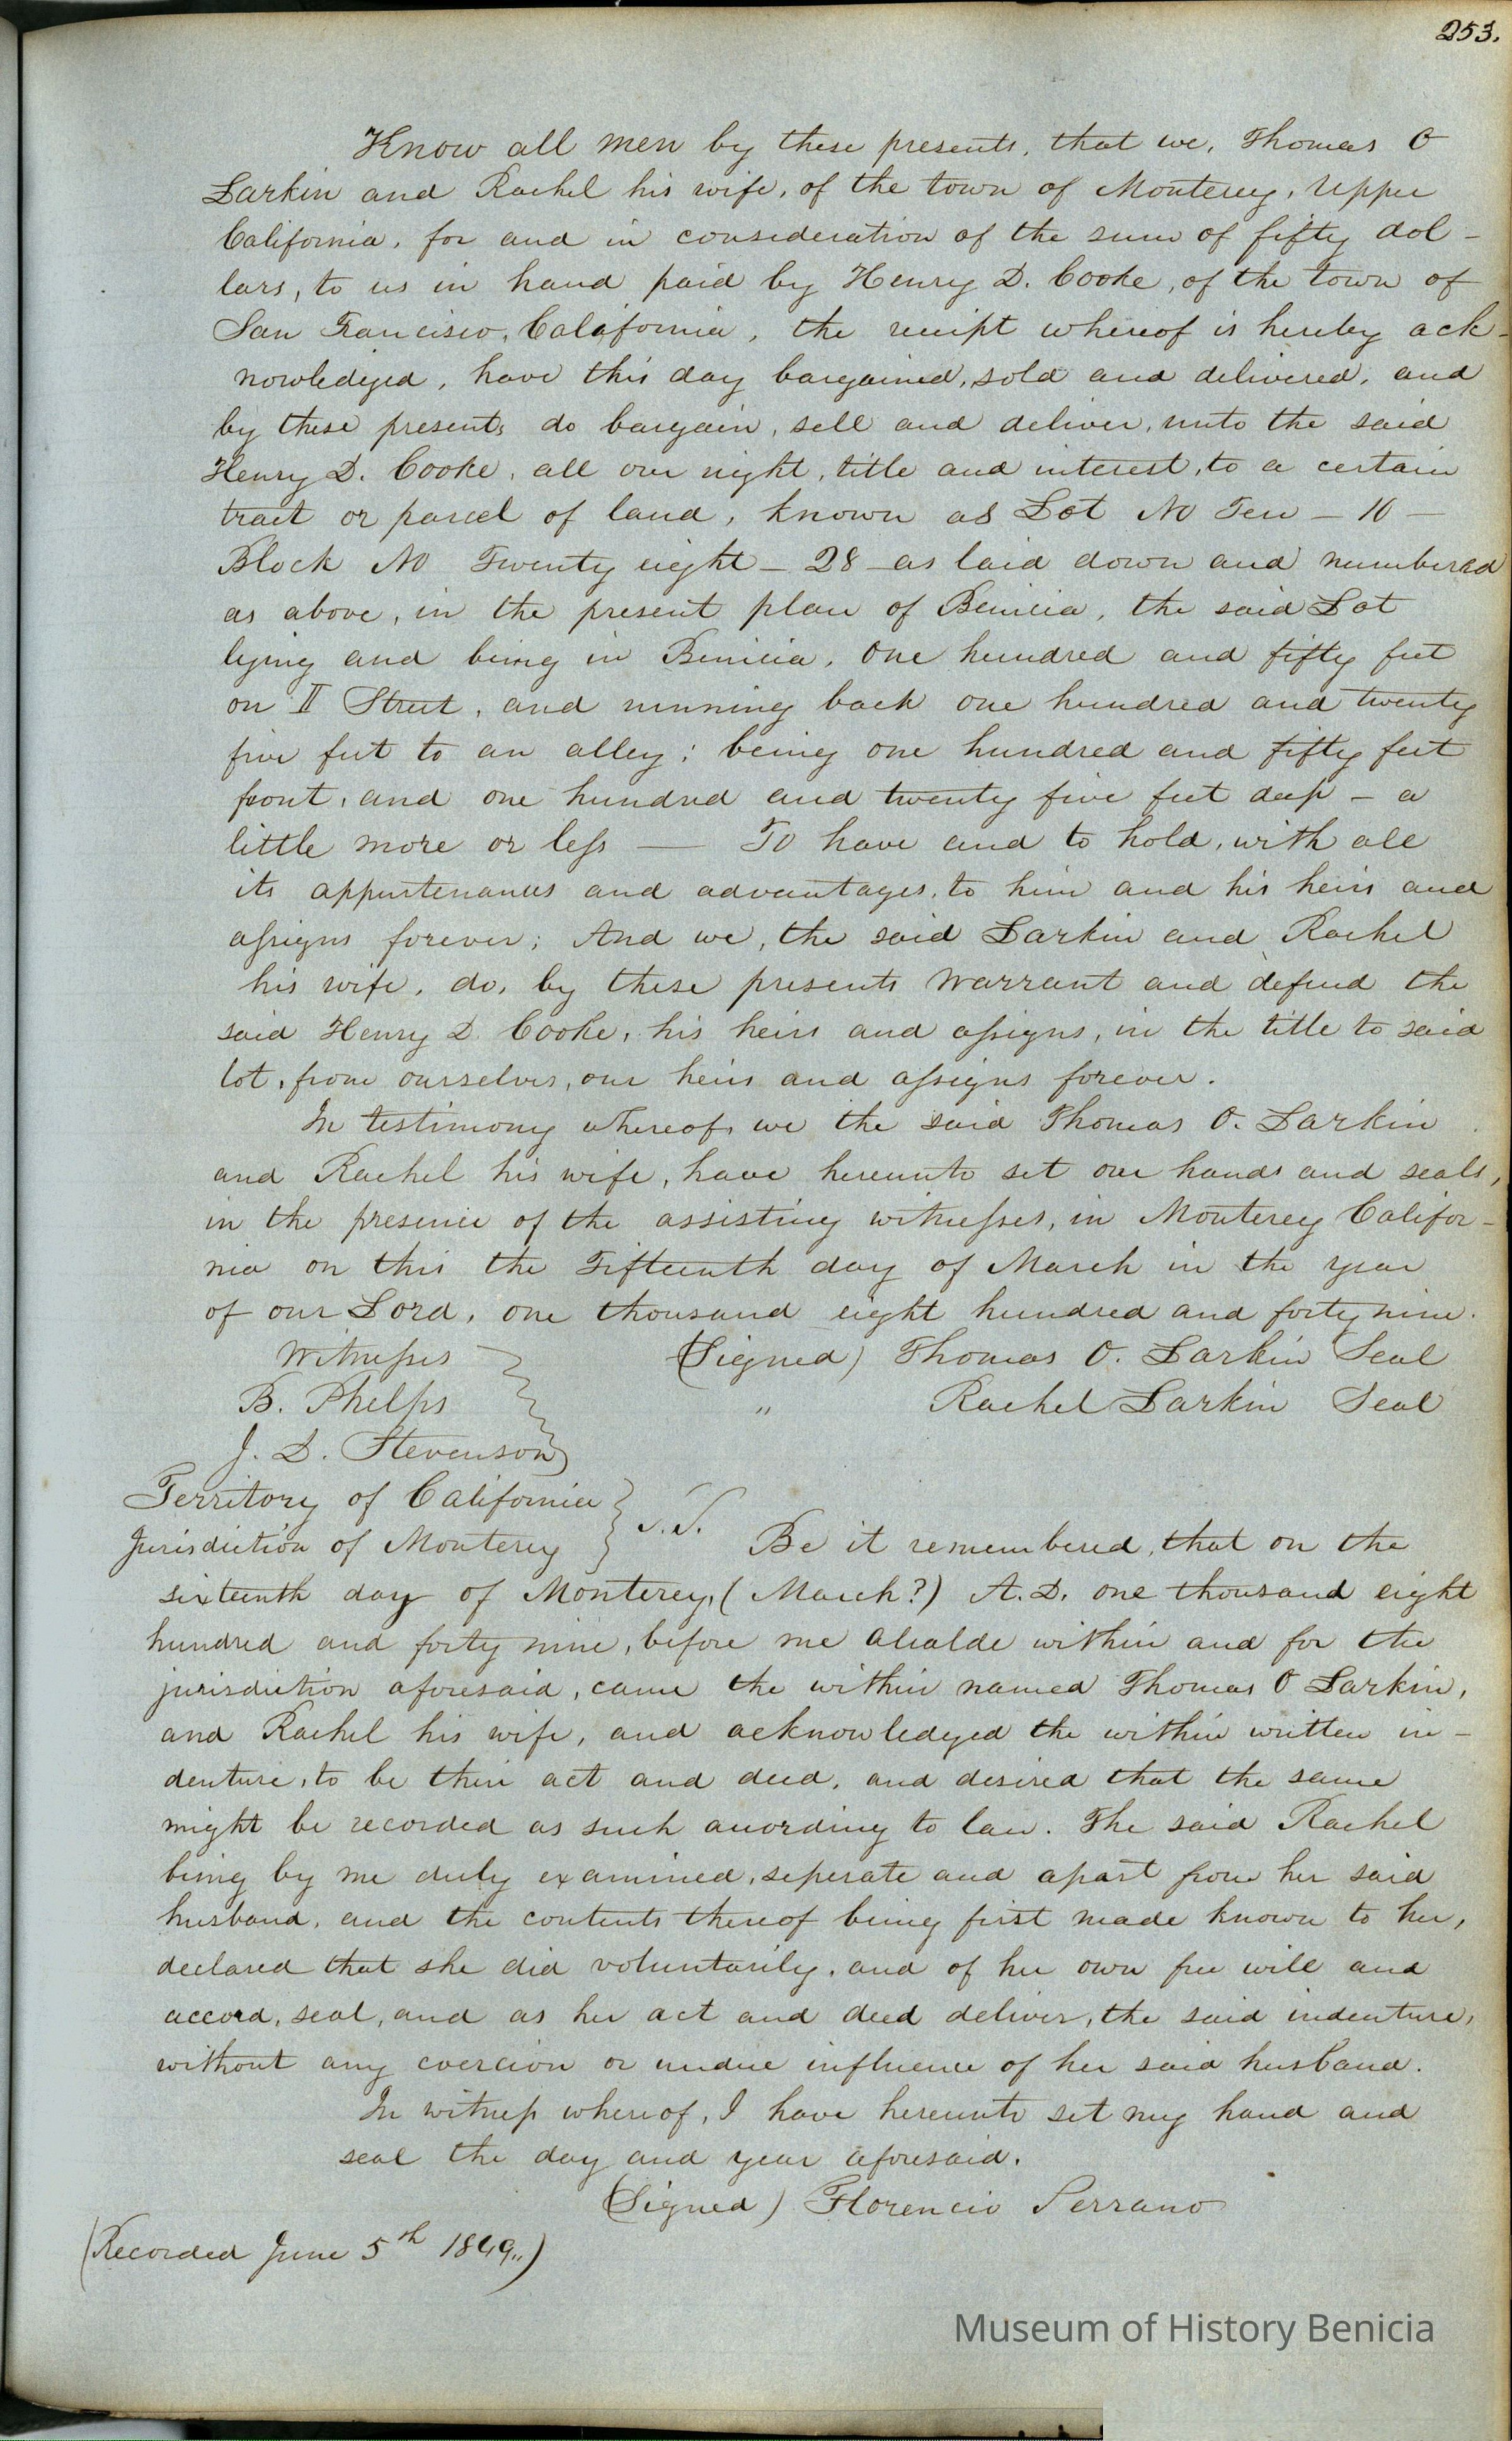 253.
Know all men by these presents, that we, Thomas O
Larkin and Rachel his wife, of the town of Monterey, Upper
California, for and in consideration of the sum of fifty dol-
lars, to us in hand paid by Henry D. Cooke, of the town of
San Francisco, California, the receipt whereof is hereby ack-
nowledged, have this day bargained, sold and delivered, and
by these presents do bargain, sell and deliver, unto the said
Henry D. Cooke, all our right, title and interest, to a certain
tract or parcel of land, known as Lot No Ten - 10 -
Block No Twenty eight - 28 - as laid down and numbered
as above, in the present plan of Benicia, the said Lot
lying and being in Benicia, One hundred and fifty feet
on II Street, and running back one hundred and twenty
five feet to an alley; being one hundred and fifty feet
front, and one hundred and twenty five feet deep - a
little more or less — To have and to hold, with all
its appurtenances and advantages, to him and his heirs and
assigns forever; And we, the said Larkin and Rachel
his wife, do, by these presents warrant and defend the
said Henry D. Cooke, his heirs and assigns, in the title to said
lot, from ourselves, our heirs and assigns forever.
In testimony whereof, we the said Thomas O. Larkin
and Rachel his wife, have hereunto set our hands and seals,
in the presence of the assisting witnesses, in Monterey Califor-
nia on this the Fifteenth day of March in the year
of our Lord, one thousand eight hundred and forty nine.
Witnesses (Signed) Thomas O. Larkin Seal
B. Phelps " Rachel Larkin Seal
J. D. Stevenson
Territory of California
Jurisdiction of Monterey } S.S. Be it remembered, that on the
sixteenth day of Monterey, (March?) A.D. one thousand eight
hundred and forty nine, before me Alcalde within and for the
jurisdiction aforesaid, came the within named Thomas O Larkin,
and Rachel his wife, and acknowledged the within written in-
denture, to be their act and deed, and desired that the same
might be recorded as such according to law. The said Rachel
being by me duly examined, seperate and apart from her said
husband, and the contents thereof being first made known to her,
declared that she did voluntarily, and of her own free will and
accord, seal, and as her act and deed deliver, the said indenture,
without any coercion or undue influence of her said husband.
In witness whereof, I have hereunto set my hand and
seal the day and year aforesaid.
(Signed) Florencio Serrano
(Recorded June 5th 1849,,)
Museum of History Benicia